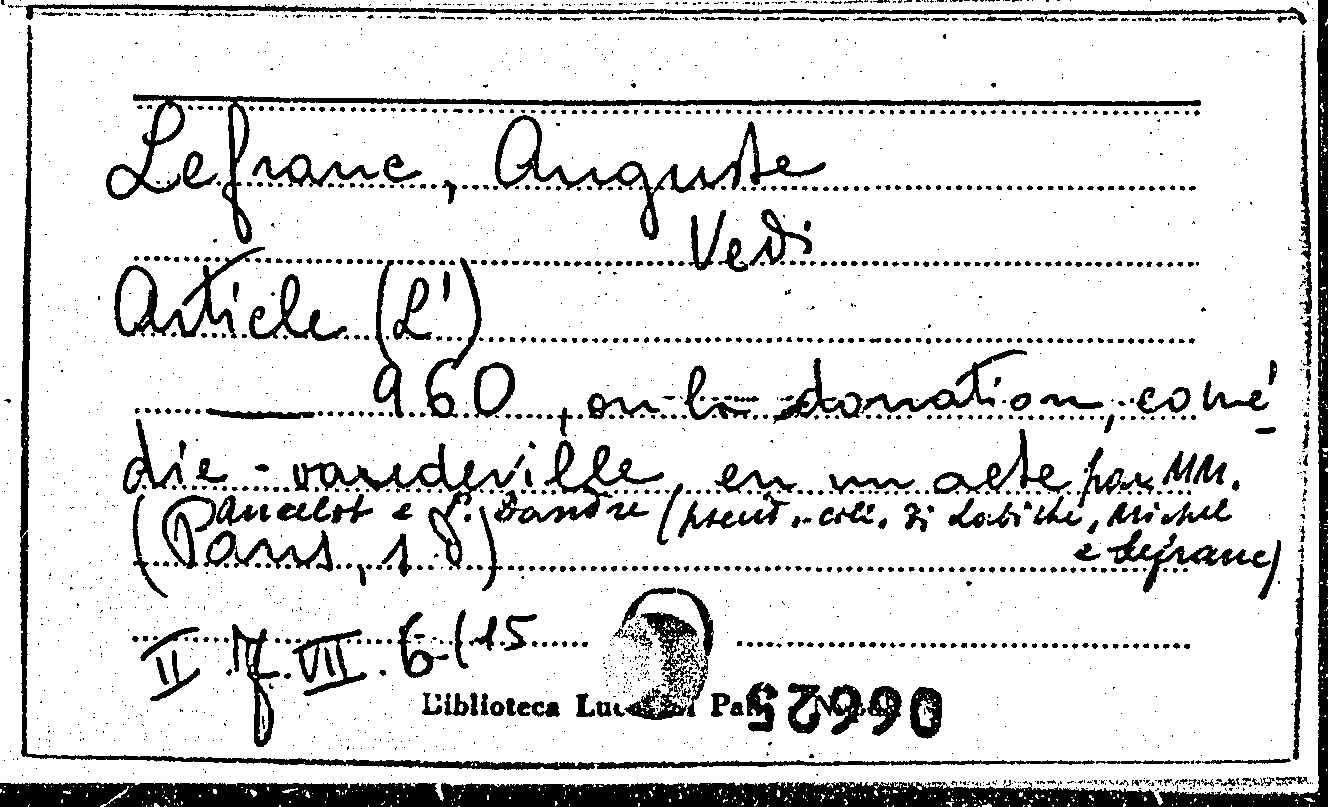 Lefranc, Auguste
Vedi
Article (L')
960, ou la donation, comé
die-vaudeville, en un acte par MM.
Ancelot e P. Dandré (pseud. coll. di Labiche, Michel
e Lefranc)
(Paris, s.d)
II. M. VII. 6 (15
Biblioteca
06625